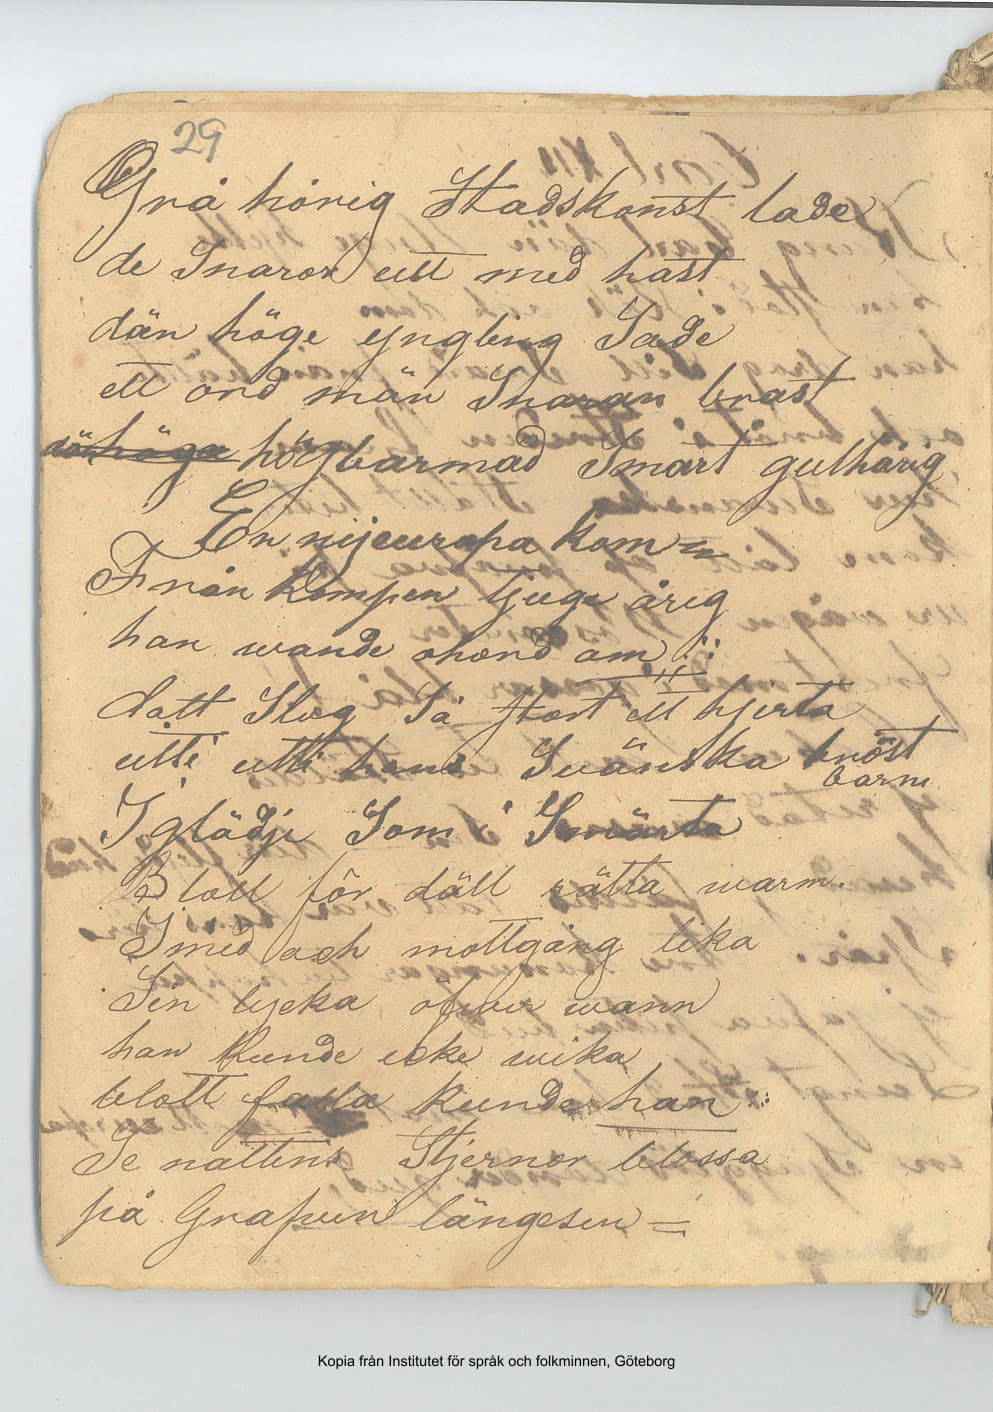 29
Grå hårig Stadskonst lade
de Snaror utt med hast
dän höge yngling Sade
ett ord män Snaran brast
höga högbarmad Smärt gulhårig
En nijeuropa kom =
Från kampen tjuge årig
han wande ohånd om :
datt Slug Så stort ett hjerta
utti utti hans Svänska bröst
barm
I glädje Som i Smärta
Blott för dätt rätta warm.
I med och mottgång lika
Sin lycka öfwer wann
han kunde icke wika
blott falla kunde han :
Se nattens Stjernor blossa
på Grafven längesen =
Kopia från Institutet för språk och folkminnen, Göteborg